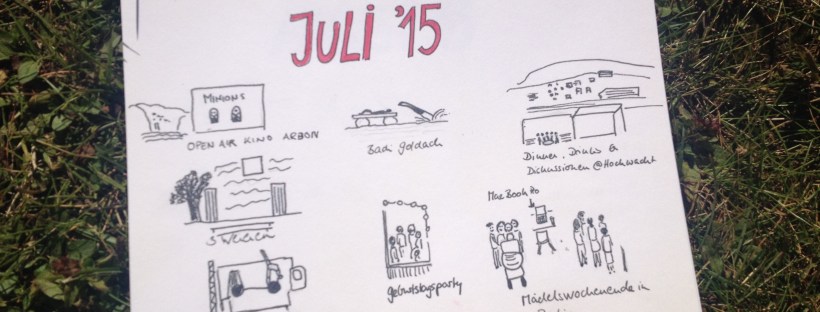 JULI '15
MINIONS
OPEN AIR KINO ARBON
Badi Goldach
Dinner, Drinks &
Diskussionen @Hochwacht
3 Weieren
MacBook Pro
geburtstagsparty
Mädelswochenende in